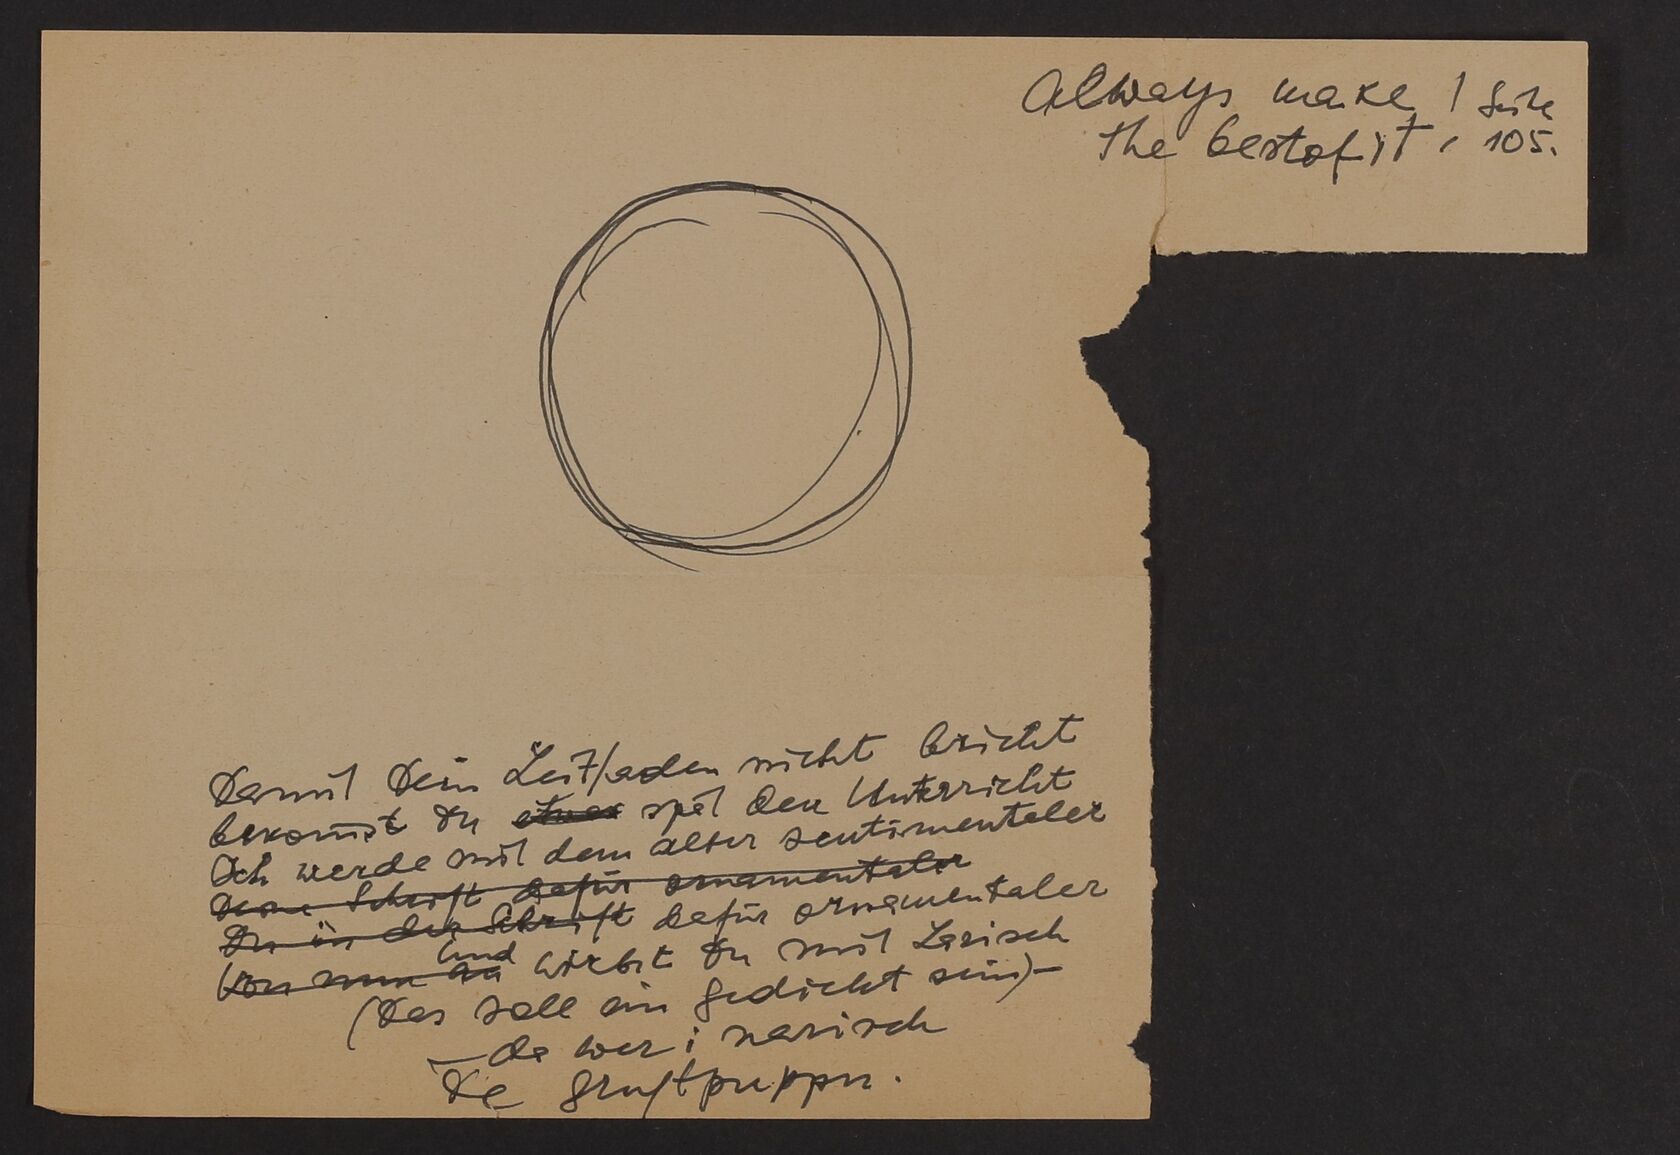 Always make ! Seite
the best of it, 105.
Damit Dein Leitfaden nicht bricht
bekomst Du etwas spät den Unterricht
Ich werde mit dem alter sentimentaler
Deine Schrift dafür ornamentaler
Du in der Schrift dafür ornamentaler
Von nun an und wirbst Du mit Larisch
(Das soll ein Gedicht sein)—
— da wer i narisch
Die Gruftpuppn.